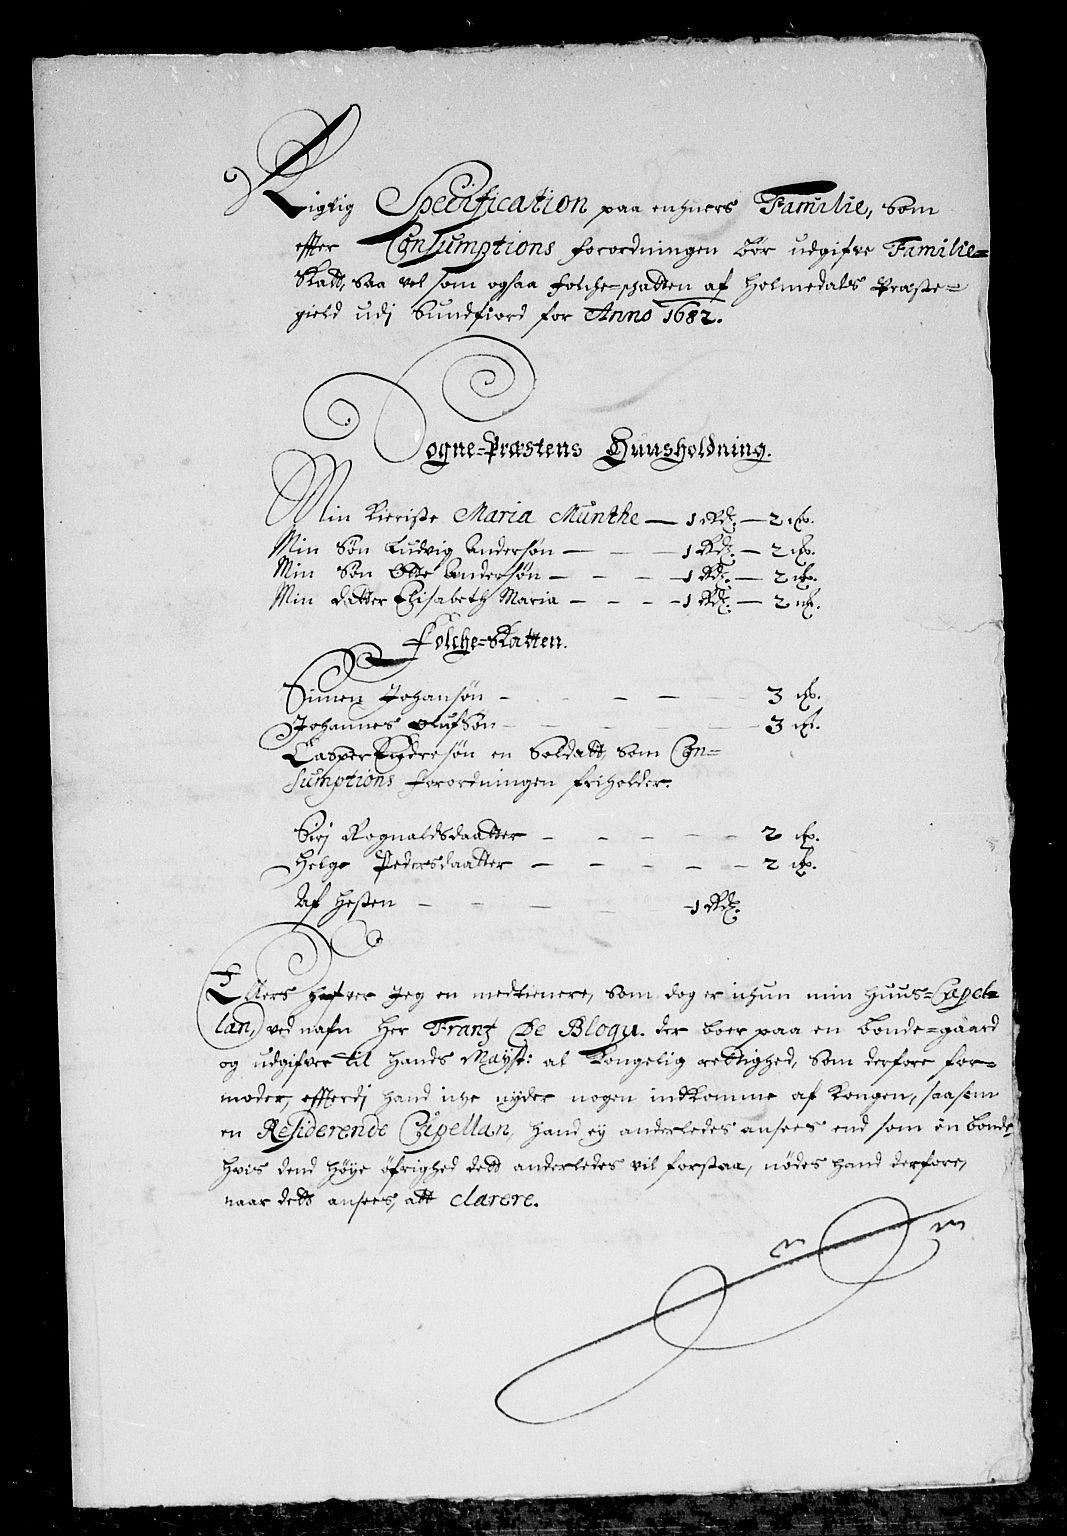 Rigtig Specification paa enhuers Familie, som
effter Consumptions forordningen bør udgifve Familie=
Skatt, saa vel som ogsaa folche=schatten af Holmedals Præste=
gield udj Sundfiord for Anno 1682.
Sogne=Præstens Huusholdning.
Min Kieriste Maria Munthe — 1 Rdr. — 2 mk.
Min Søn Ludvig Andersøn — — — 1 Rdr. — 2 mk.
Min Søn Otte Andersøn — — — 1 Rdr. — 2 mk.
Min datter Elisabeth Maria — — — 1 Rdr. — 2 mk.
Folche=Skatten.
Simen Johansøn — — — — 3 mk.
Johannes Olufsøn — — — — 3 mk.
Casper Endresøn en Soldatt, som Con=
sumptions forordningen friholder.
Sirj Rognaldsdaatter — — — — 2 mk.
Helge Pedersdaatter — — — — 2 mk.
Af Hesten — — — — 1 Rdr.
Ellers hafver Jeg en medtienere, som dog er ichun min Huus=Capel=
lan, ved nafn Her Frantz De Blogu. der boer paa en bonde=gaard
og udgifver til Hands Mayst: al Kongelig rettighed, som derfore for=
moder, effterdj hand iche nyder nogen indkomme af Kongen, saasom
en Residerende Capellan, hand ey anderledes ansees end som en bonde
hvis dend Høye øfrighed dett anderledes vil forstaa, nødes hand derfore,
naar dett ansees, att clarere.